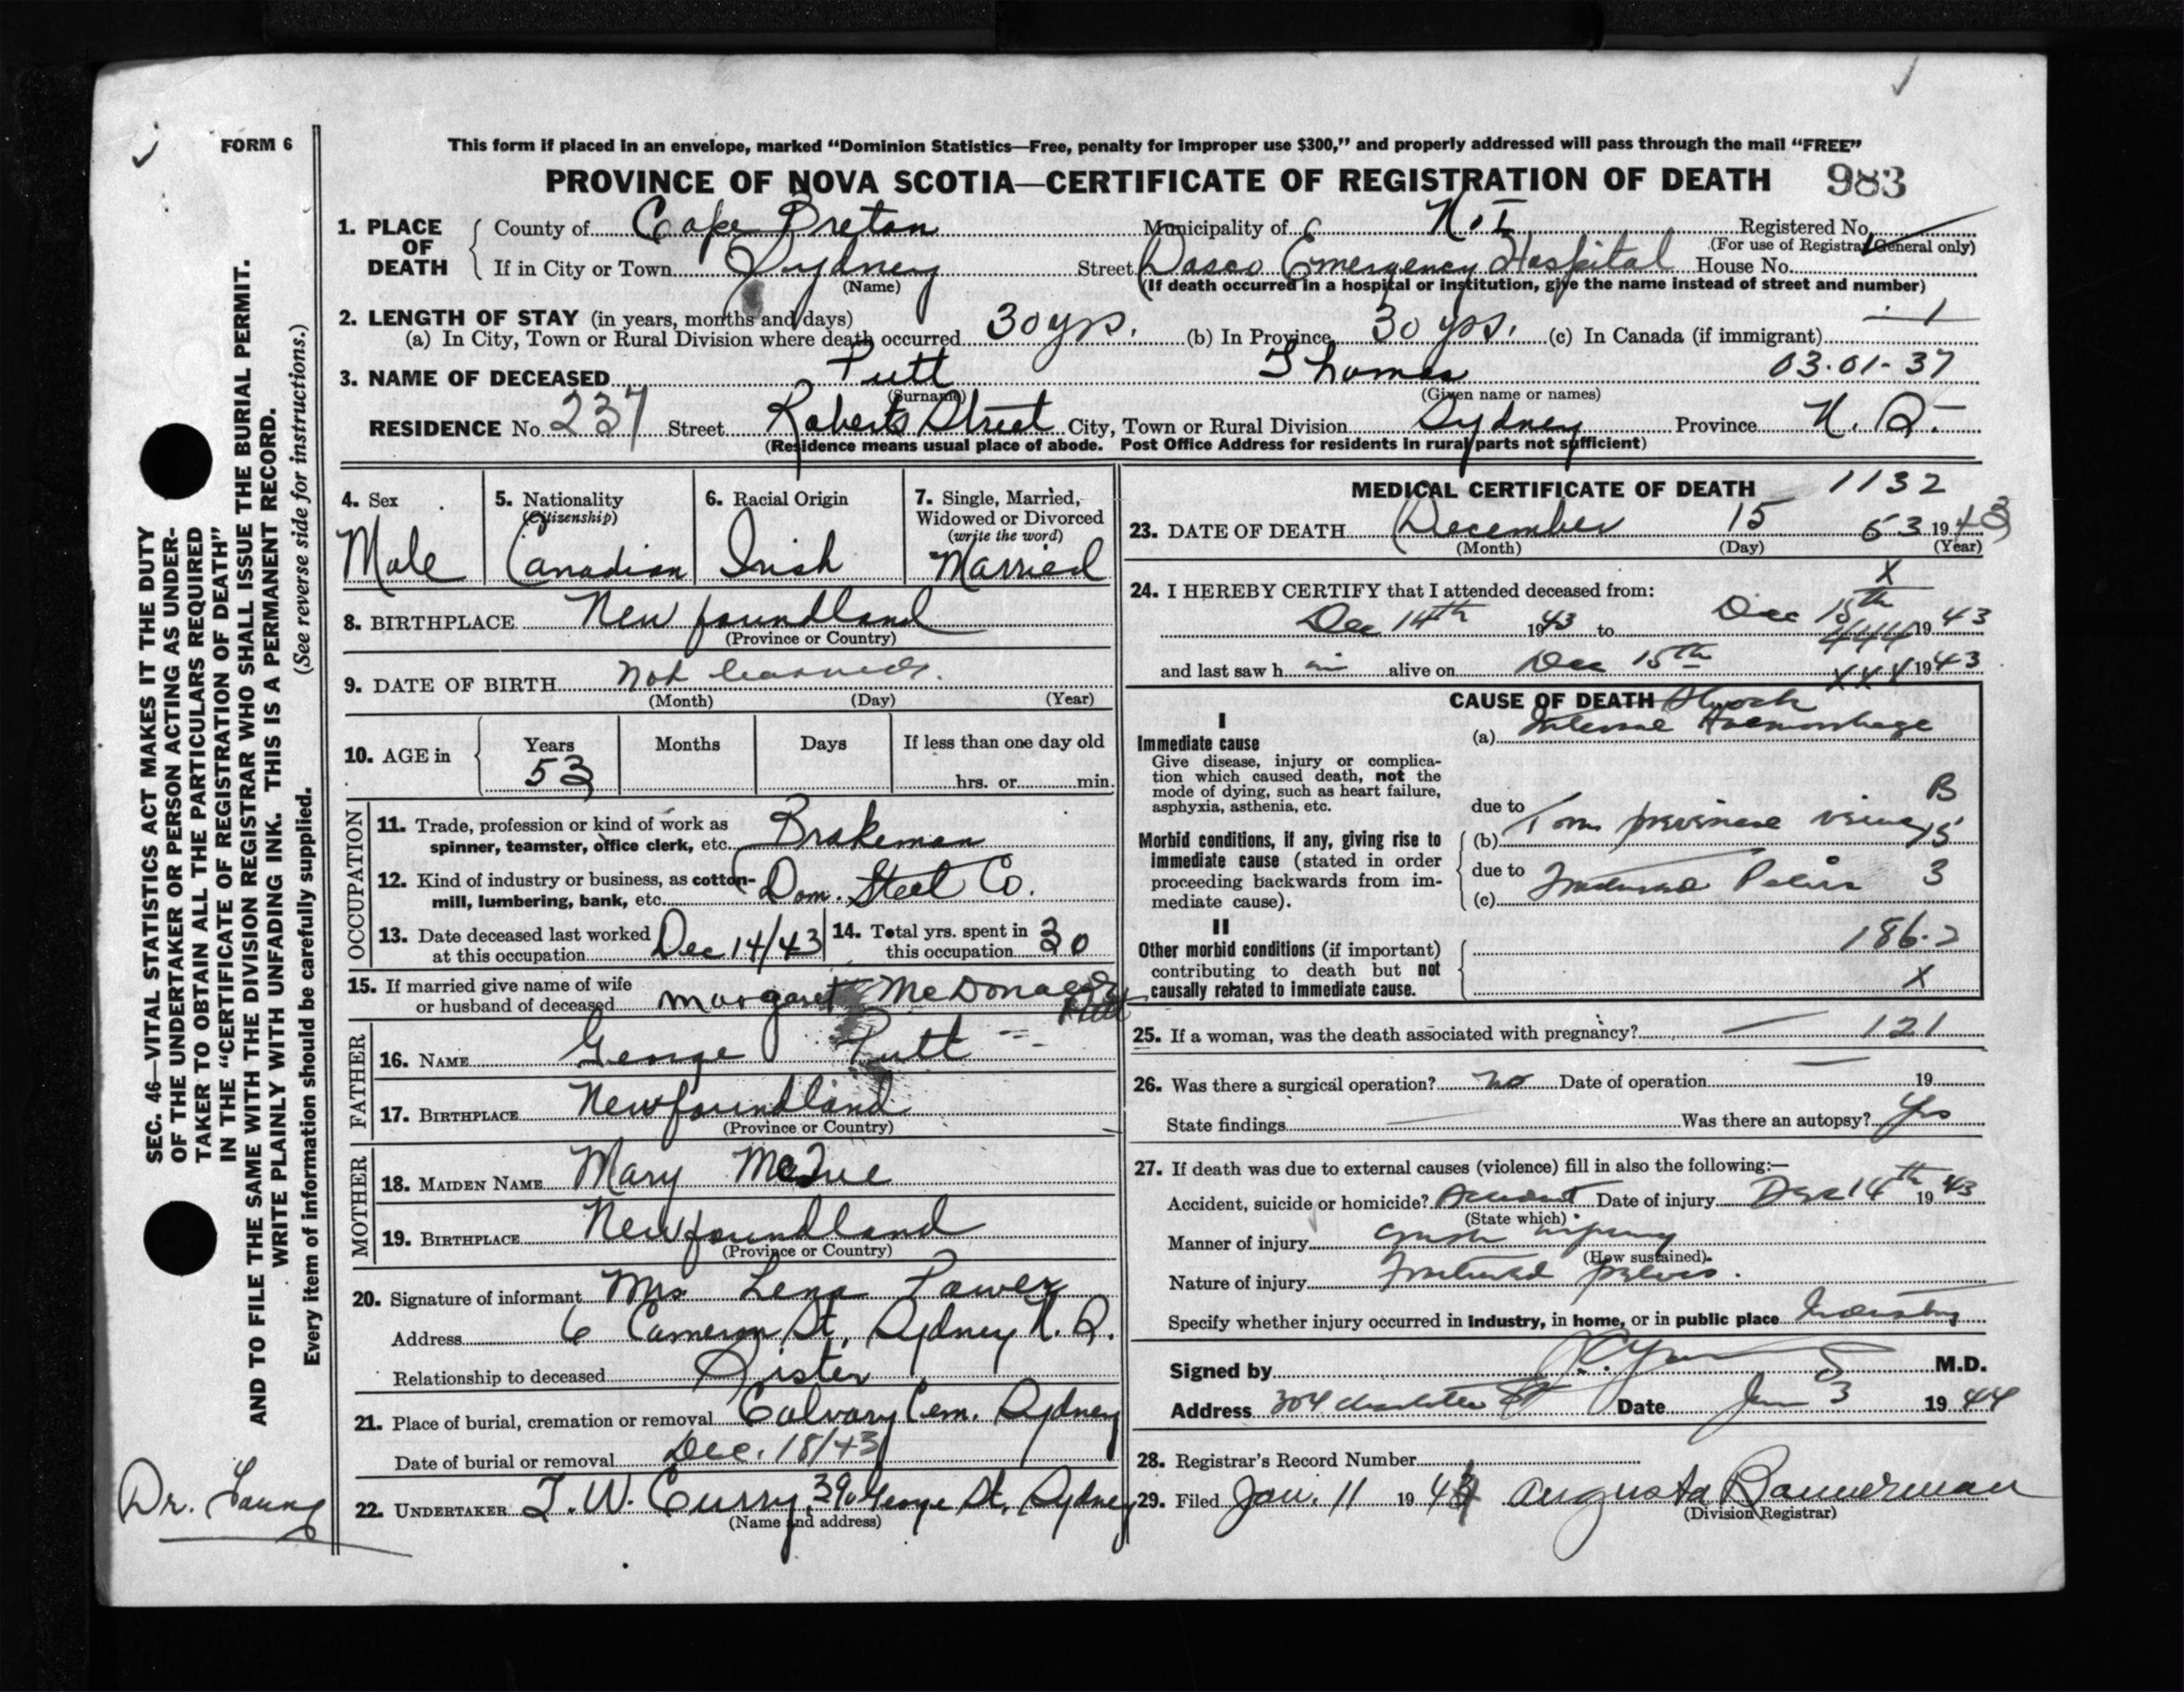 FORM 6
This form if placed in an envelope, marked “Dominion Statistics—Free, penalty for improper use $300,” and properly addressed will pass through the mail “FREE”
PROVINCE OF NOVA SCOTIA—CERTIFICATE OF REGISTRATION OF DEATH 983
1. PLACE OF DEATH
County of Cape Breton Municipality of Registered No.
(For use of Registrar General only)
If in City or Town Sydney Street Dasco Emergency Hospital House No.
(Name) (If death occurred in a hospital or institution, give the name instead of street and number)
2. LENGTH OF STAY (in years, months and days)
(a) In City, Town or Rural Division where death occurred 30 yrs. (b) In Province 30 yrs. (c) In Canada (if immigrant)
3. NAME OF DECEASED Putt Thomas 03-01-37
(Surname) (Given name or names)
RESIDENCE No. 237 Street Roberts Street City, Town or Rural Division Sydney Province N. S.
(Residence means usual place of abode. Post Office Address for residents in rural parts not sufficient)
4. Sex 5. Nationality (Citizenship) 6. Racial Origin 7. Single, Married, Widowed or Divorced (write the word)
Male Canadian Irish Married
8. BIRTHPLACE Newfoundland
(Province or Country)
9. DATE OF BIRTH Not learned.
(Month) (Day) (Year)
10. AGE in Years Months Days If less than one day old
53 hrs. or min.
OCCUPATION
11. Trade, profession or kind of work as
spinner, teamster, office clerk, etc. Brakeman
12. Kind of industry or business, as cotton-
mill, lumbering, bank, etc. Dom. Steel Co.
13. Date deceased last worked
at this occupation Dec 14/43
14. Total yrs. spent in
this occupation 30
15. If married give name of wife
or husband of deceased Margaret McDonald Putt
FATHER
16. NAME George Putt
17. BIRTHPLACE Newfoundland
(Province or Country)
MOTHER
18. MAIDEN NAME Mary
19. BIRTHPLACE Newfoundland
(Province or Country)
20. Signature of informant Mrs Lena Power
Address 6 Cameron St, Sydney N. S.
Relationship to deceased Sister
21. Place of burial, cremation or removal Calvary Cem. Sydney
Date of burial or removal Dec. 18/43
22. UNDERTAKER T. W. Curry, 390 George St, Sydney
(Name and address)
MEDICAL CERTIFICATE OF DEATH 1132
23. DATE OF DEATH December 15 53 1943
(Month) (Day) (Year)
24. I HEREBY CERTIFY that I attended deceased from: X
Dec 14th 1943 to Dec 15th 1943
and last saw him alive on Dec 15th XXX 1943
CAUSE OF DEATH Shock
I
Immediate cause
Give disease, injury or complica-
tion which caused death, not the
mode of dying, such as heart failure,
asphyxia, asthenia, etc.
(a) Internal Haemorrhage
B
due to
Morbid conditions, if any, giving rise to
immediate cause (stated in order
proceeding backwards from im-
mediate cause).
(b) Torn 15
due to
(c) Fractured Pelvis 3
II
Other morbid conditions (if important)
contributing to death but not
causally related to immediate cause.
186.2
X
25. If a woman, was the death associated with pregnancy? — 121
26. Was there a surgical operation? No Date of operation — 19
State findings — Was there an autopsy? Yes
27. If death was due to external causes (violence) fill in also the following:—
Accident, suicide or homicide? Accident Date of injury Dec 14th 1943
(State which)
Manner of injury Crush injury
(How sustained)
Nature of injury Fractured pelvis.
Specify whether injury occurred in industry, in home, or in public place Industry
Signed by M.D.
Address 304 Charlotte St Date Jan 3 1944
28. Registrar's Record Number
29. Filed Jan. 11 1944 Augusta Bannerman
(Division Registrar)
SEC. 46—VITAL STATISTICS ACT MAKES IT THE DUTY
OF THE UNDERTAKER OR PERSON ACTING AS UNDER-
TAKER TO OBTAIN ALL THE PARTICULARS REQUIRED
IN THE “CERTIFICATE OF REGISTRATION OF DEATH”
AND TO FILE THE SAME WITH THE DIVISION REGISTRAR WHO SHALL ISSUE THE BURIAL PERMIT.
WRITE PLAINLY WITH UNFADING INK. THIS IS A PERMANENT RECORD.
Every item of information should be carefully supplied. (See reverse side for instructions.)
Dr. Young